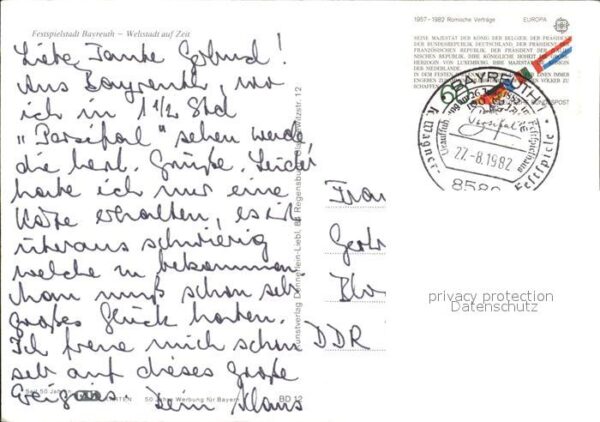 Festspielstadt Bayreuth – Weltstadt auf Zeit
Liebe Tante Gertrud!
Aus Bayreuth, wo
ich in 1 1/2 Std
"Parsifal" sehen werde
die herzl. Grüße. Leider
habe ich nur eine
Karte erhalten, es ist
überaus schwierig
welche zu bekommen.
Man muß schon sehr
großes Glück haben.
Ich freue mich schon
sehr auf dieses große
Ereignis. Dein Klaus
50 Jahre Werbung für Bayern
BD 12
Kunstverlag Dennerlein-Liebl, 84 Regensburg
12
1957-1982 Römische Verträge
EUROPA
SEINE MAJESTÄT DER KÖNIG DER BELGIER, DER PRÄSIDENT
DER BUNDESREPUBLIK DEUTSCHLAND, DER PRÄSIDENT
DER FRANZÖSISCHEN REPUBLIK, DER PRÄSIDENT DER ITALIE-
NISCHEN REPUBLIK, IHRE KÖNIGLICHE HOHEIT
HERZOGIN VON LUXEMBURG, IHRE MAJESTÄT
DER NIEDERLANDE
BAYREUTH 1
R. Wagner-
Festspiele
22.-8.1982
858
Frau
Gertr
DDR
privacy protection
Datenschutz